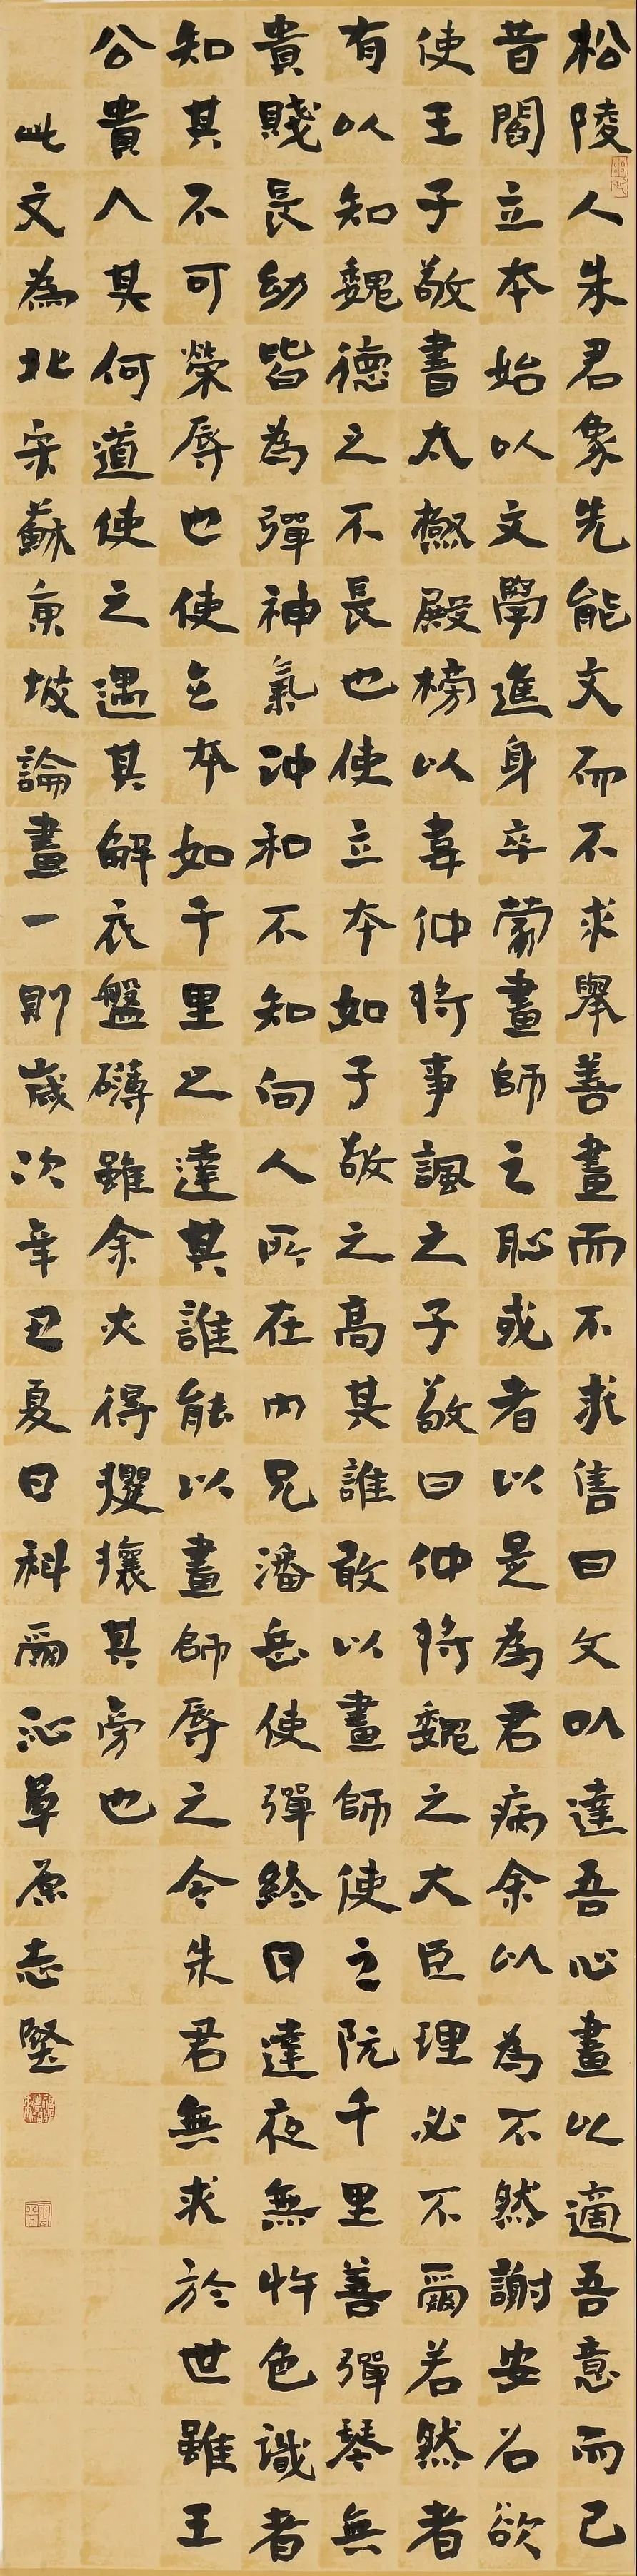 松陵人朱君象先能文而不求舉善畫而不求售曰文以達吾心畫以適吾意而已
昔閻立本始以文學進身卒蒙畫師之恥或者以是為君病余以為不然謝安石欲
使王子敬書太極殿榜以韋仲將事諷之子敬曰仲將魏之大臣理必不爾若然者
有以知魏德之不長也使立本如子敬之高其誰敢以畫師使之阮千里善彈琴無
貴賤長幼皆為彈神氣沖和不知向人所在內兄潘岳使彈終日達夜無忤色識者
知其不可榮辱也使立本如千里之達其誰能以畫師辱之令朱君無求於世雖王
公貴人其何道使之遇其解衣盤礴雖余亦得攫攘其旁也
此文為北宋蘇東坡論畫一則歲次辛丑夏日科爾沁草原志堅